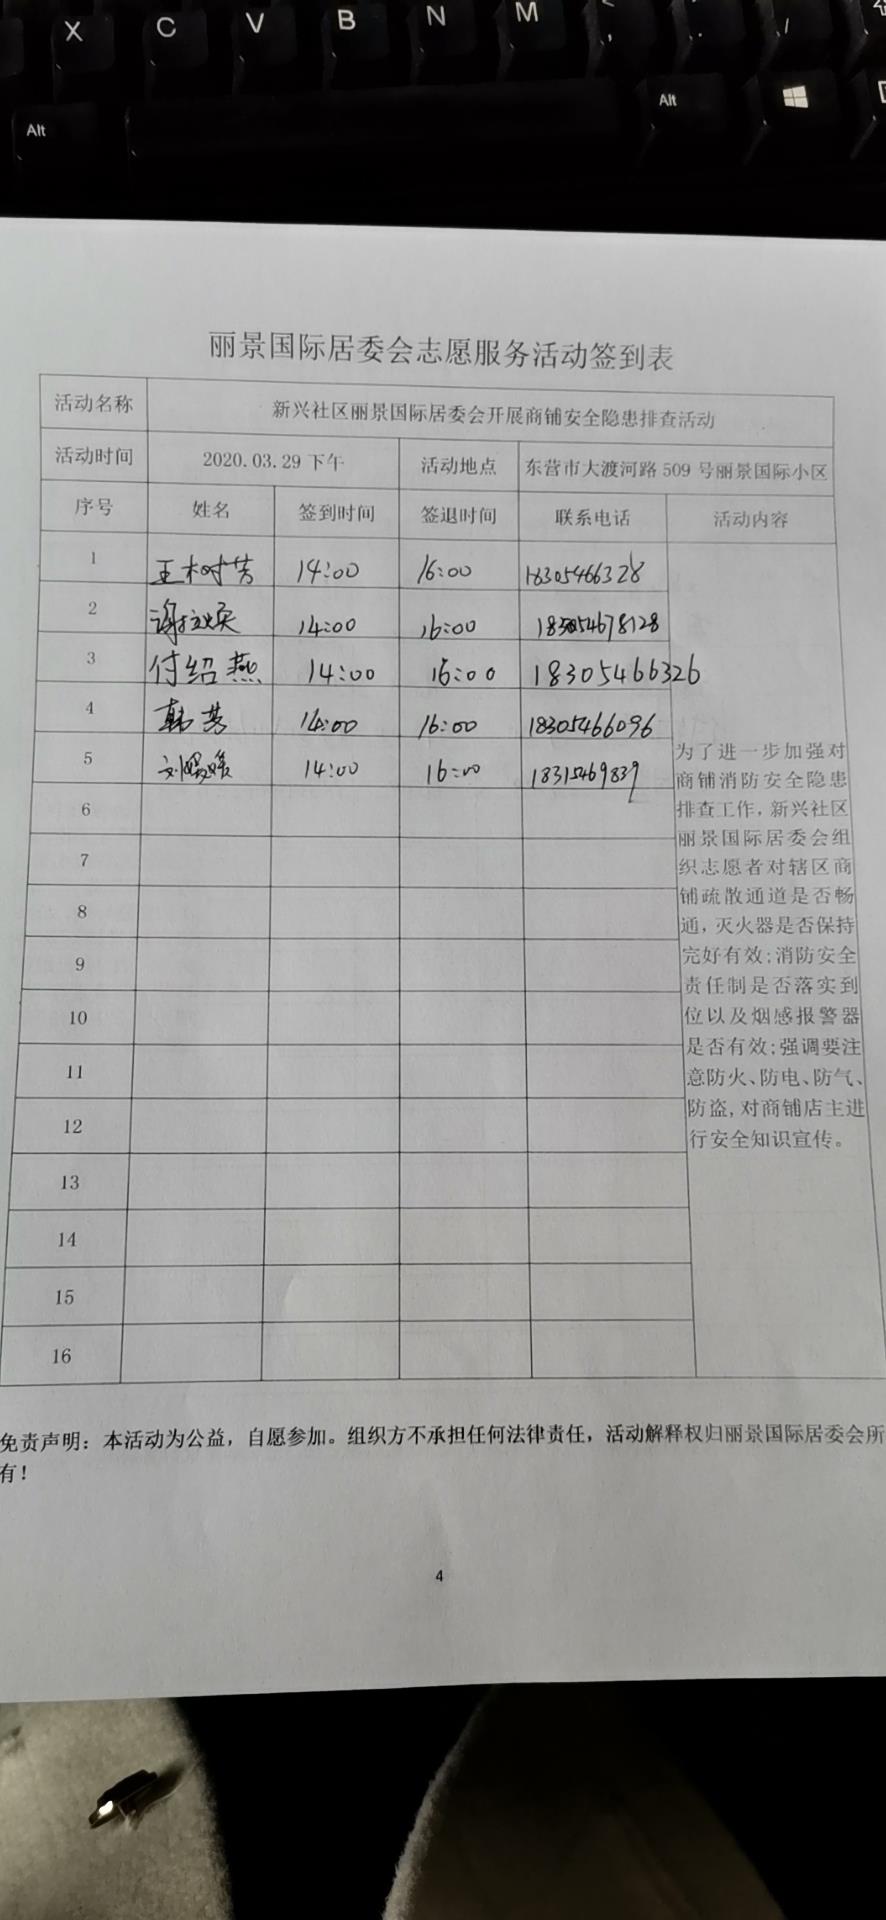 X C V B N M
Alt Alt
丽景国际居委会志愿服务活动签到表
活动名称 新兴社区丽景国际居委会开展商铺安全隐患排查活动
活动时间 2020.03.29下午 活动地点 东营市大渡河路509号丽景国际小区
序号 姓名 签到时间 签退时间 联系电话 活动内容
1 王树芳 14:00 16:00 18305466328
2 14:00 16:00 183054678128
3 付绍燕 14:00 16:00 18305466326
4 韩芳 14:00 16:00 18305466096
5 14:00 16:00 18315469839
为了进一步加强对
商铺消防安全隐患
6 排查工作，新兴社区
丽景国际居委会组
7 织志愿者对辖区商
铺疏散通道是否畅
8 通，灭火器是否保持
完好有效；消防安全
9 责任制是否落实到
位以及烟感报警器
10 是否有效；强调要注
11 意防火、防电、防气、
防盗，对商铺店主进
12 行安全知识宣传。
13
14
15
16
免责声明：本活动为公益，自愿参加。组织方不承担任何法律责任，活动解释权归丽景国际居委会所
有！
4